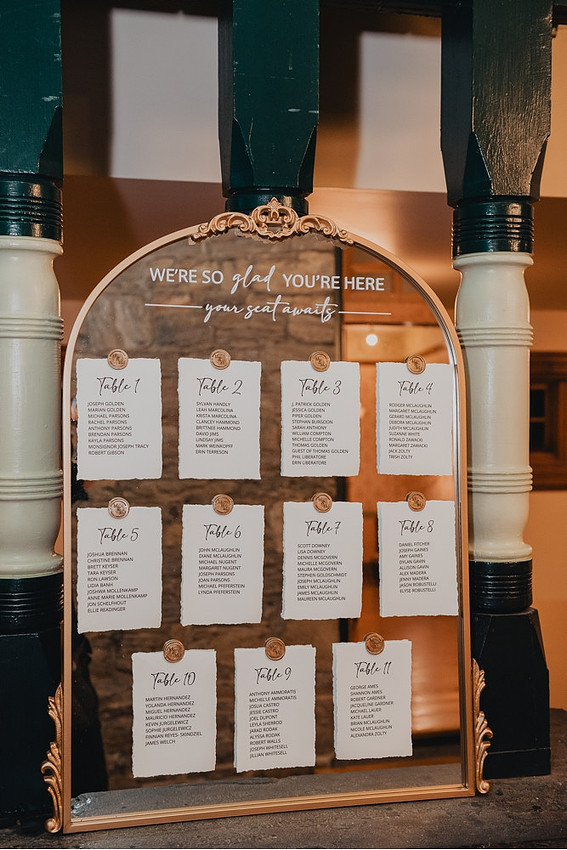 WE'RE SO glad YOU'RE HERE
your seat awaits
Table 1
JOSEPH GOLDEN
MARIAN GOLDEN
MICHAEL PARSONS
RACHEL PARSONS
ANTHONY PARSONS
BRENDAN PARSONS
KAYLA PARSONS
MONSIGNOR JOSEPH TRACY
ROBERT GIBSON
Table 2
SYLVAN HANDLY
LEAH MARCOLINA
KRISTA MARCOLINA
CLANCEY HAMMOND
BRITTNEE HAMMOND
DAVID JIMS
LINDSAY JIMS
MARK WEINKOPFF
ERIN TERRESON
Table 3
J. PATRICK GOLDEN
JESSICA GOLDEN
PIPER GOLDEN
STEPHAN BURGOON
SARAH ANTHONY
WILLIAM COMPTON
MICHELLE COMPTON
THOMAS GOLDEN
GUEST OF THOMAS GOLDEN
PHIL LIBERATORE
ERIN LIBERATORE
Table 4
RODGER MCLAUGHLIN
MARGARET MCLAUGHLIN
GERARD MCLAUGHLIN
DEBORA MCLAUGHLIN
JUDITH MCLAUGHLIN
THERESE WHITE
RONALD ZAWACKI
MARGARET ZAWACKI
JACK ZOLTY
TRISH ZOLTY
Table 5
JOSHUA BRENNAN
CHRISTINE BRENNAN
BRETT KEYSER
TARA KEYSER
RON LAWSON
LIDIA BANH
JOSHWA MOLLENKAMP
ANNE MARIE MOLLENKAMP
JON SCHELHOUT
ELLIE READINGER
Table 6
JOHN MCLAUGHLIN
DIANE MCLAUGHLIN
MICHAEL NUGENT
MARGARET NUGENT
JOSEPH PARSONS
JOAN PARSONS
MICHAEL PFEFERSTEIN
LYNDA PFEFFERSTEIN
Table 7
SCOTT DOWNEY
LISA DOWNEY
DENNIS MCGOVERN
MICHELLE MCGOVERN
MAURA MCGOVERN
STEPHEN GOLDSCHMIDT
JOSEPH MCLAUGHLIN
EMILY MCLAUGHLIN
JAMES MCLAUGHLIN
MAUREEN MCLAUGHLIN
Table 8
DANIEL FITCHER
JOSEPH GAINES
AMY GAINES
DYLAN GAVIN
ALLISON GAVIN
ALEX MADERA
JENNY MADERA
JASON ROBUSTELLI
ELYSE ROBUSTELLI
Table 10
MARTIN HERNANDEZ
YOLANDA HERNANDEZ
MIGUEL HERNANDEZ
MAURICIO HERNANDEZ
KEVIN JURGELEWICZ
SOPHIE JURGELEWICZ
FINNIAN REYES- SKINDZIEL
JAMES WELCH
Table 9
ANTHONY AMMORATIS
MICHELLE AMMORATIS
JOSUA CASTRO
JESSE CASTRO
JOEL DUPONT
LEYLA SHERROD
JARAD RODAK
ALYSSA RODAK
ROBERT WALLS
JOSEPH WHITESELL
JILLIAN WHITESELL
Table 11
GEORGE AMES
SHANNON AMES
ROBERT GARDNER
JACQUELINE GARDNER
MICHAEL LAUER
KATE LAUER
BRIAN MCLAUGHLIN
NICOLE MCLAUGHLIN
ALEXANDRA ZOLTY